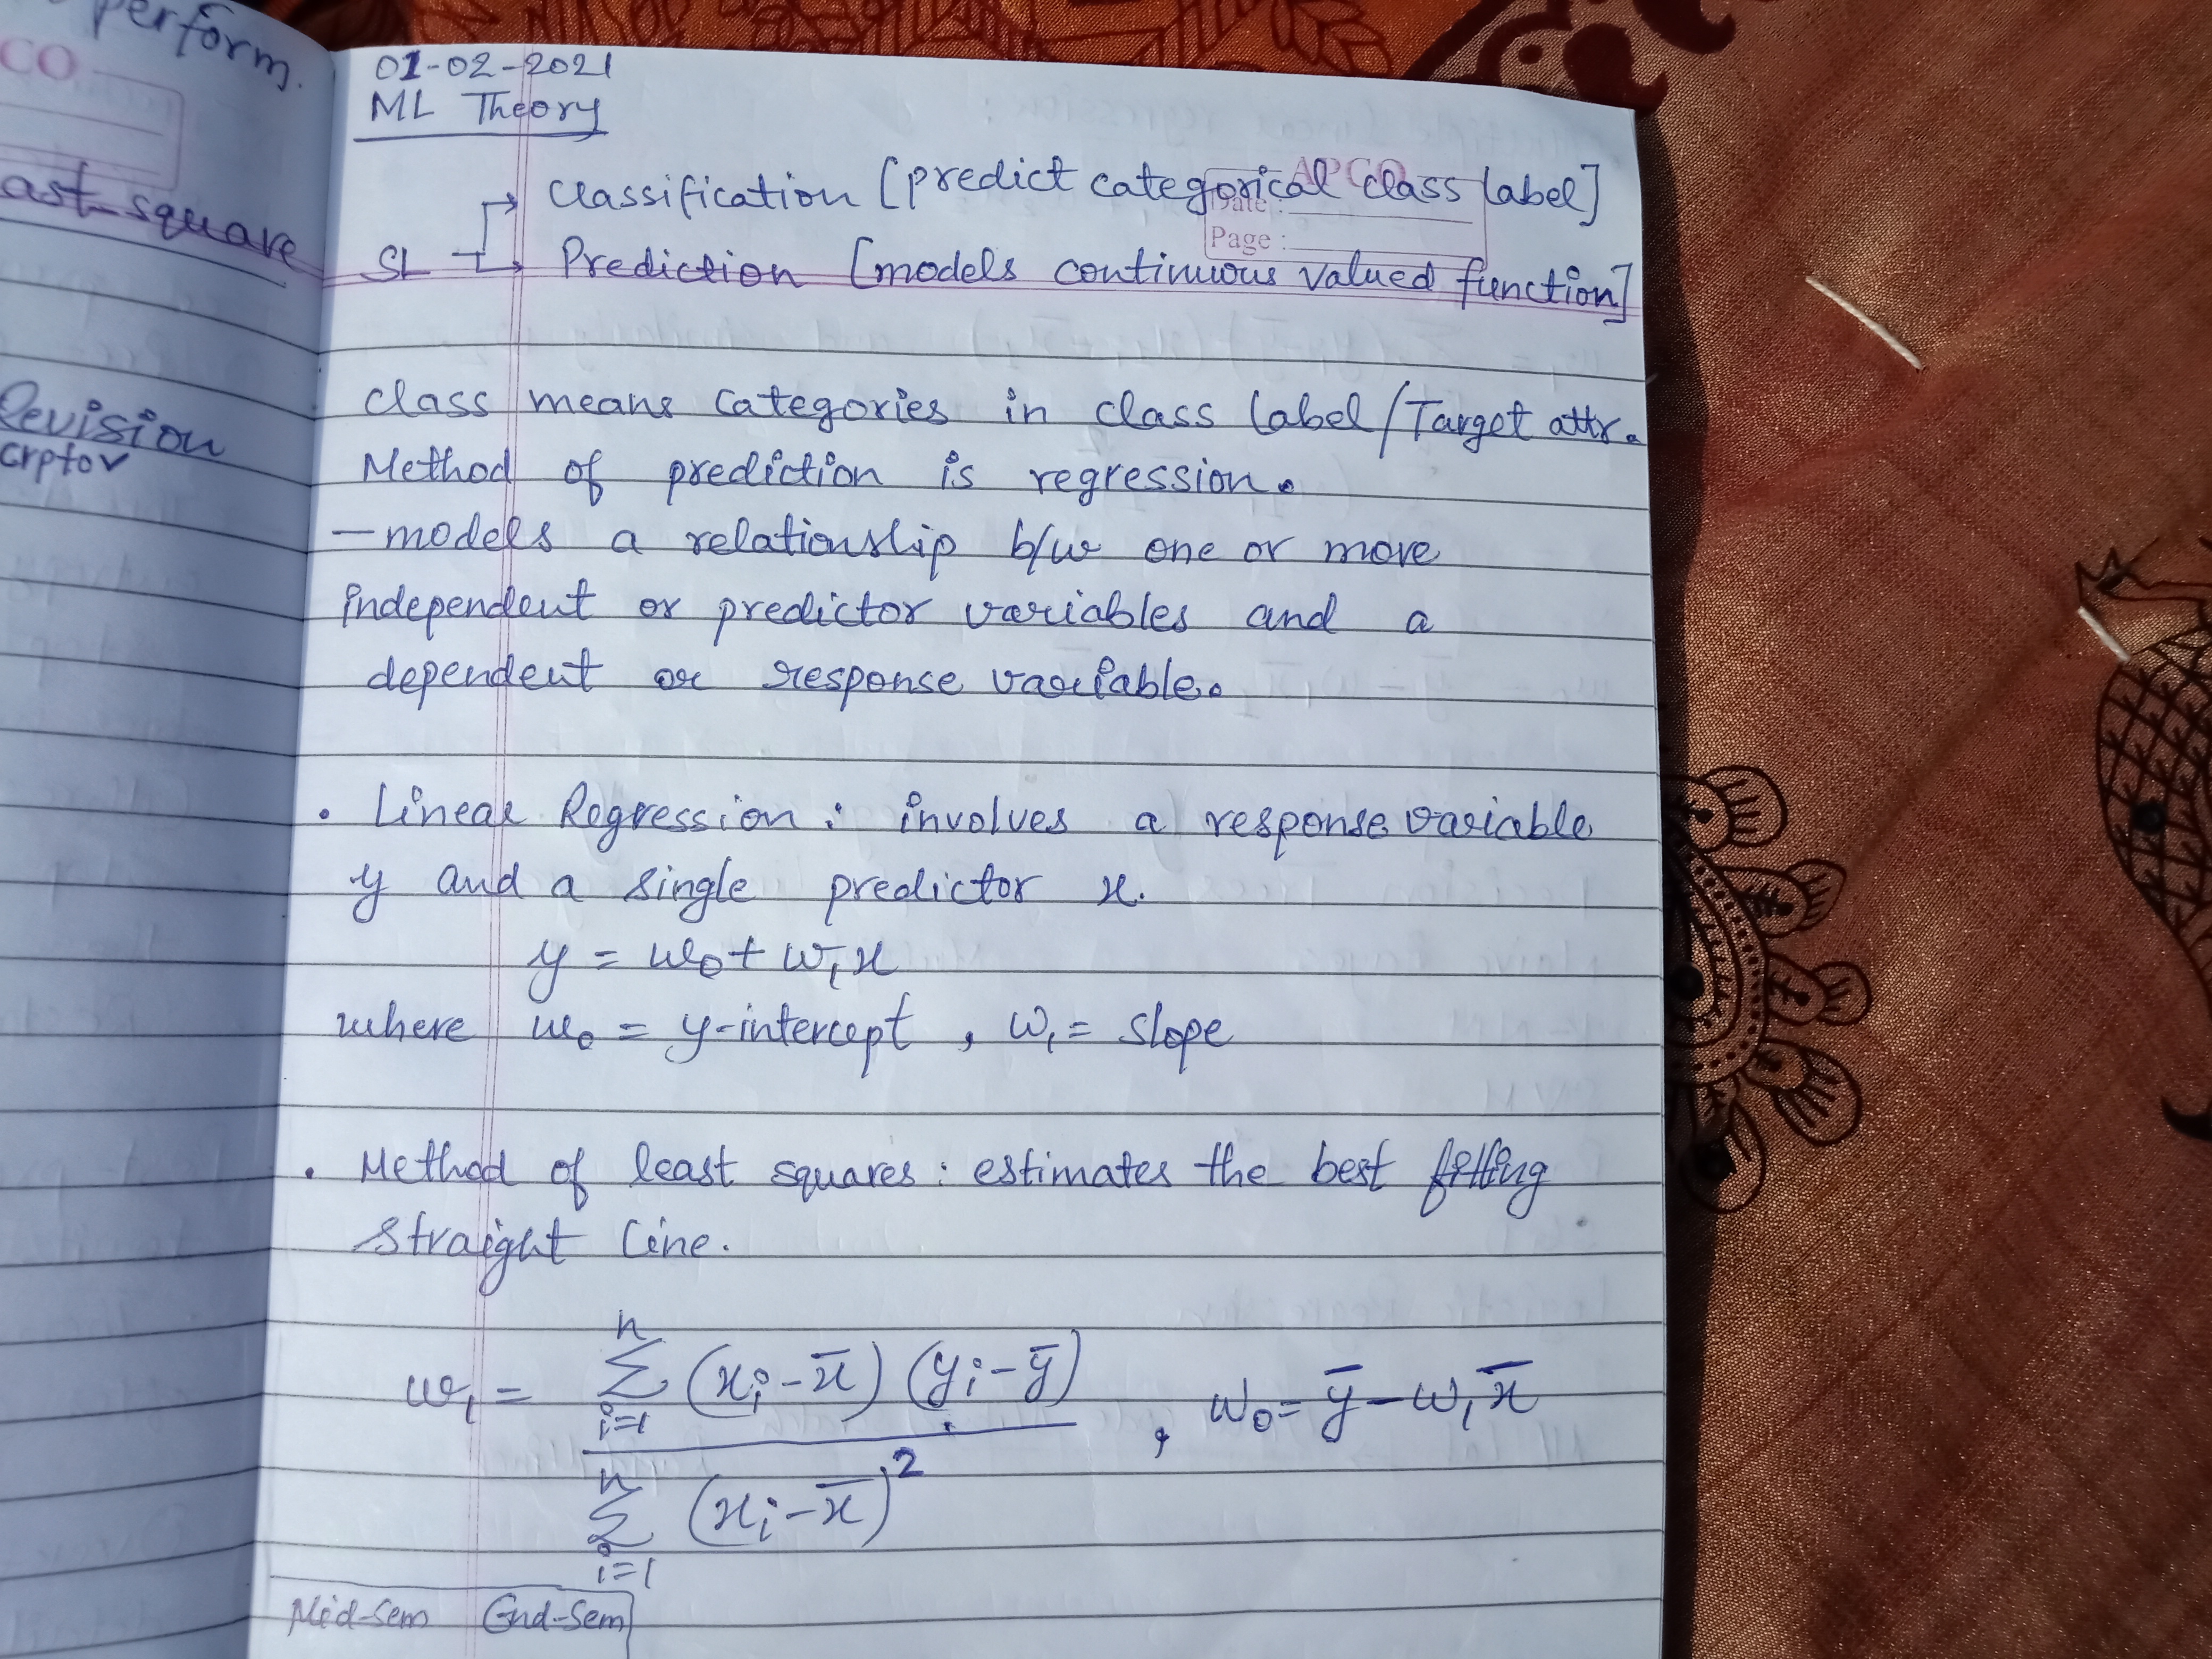 perform.
CO
ast square
Revision
crptor
01-02-2021
ML Theory
APCO
Date :
Page :
SL → Classification [predict categorical class label]
→ Prediction [models continuous valued function]
class means categories in class label/Target attr.
Method of prediction is regression.
- models a relationship b/w one or more
independent or predictor variables and a
dependent or response variable.
• Linear Regression : involves a response variable
y and a single predictor x.
y = w₀ + w₁x
where w₀ = y-intercept , w₁ = slope
• Method of least squares : estimates the best fitting
straight line.
w₁ = n∑i=1 (xᵢ - x̄) (yᵢ - ȳ) / n∑i=1 (xᵢ - x̄)² , w₀ = ȳ - w₁x̄
Mid-Sem End-Sem